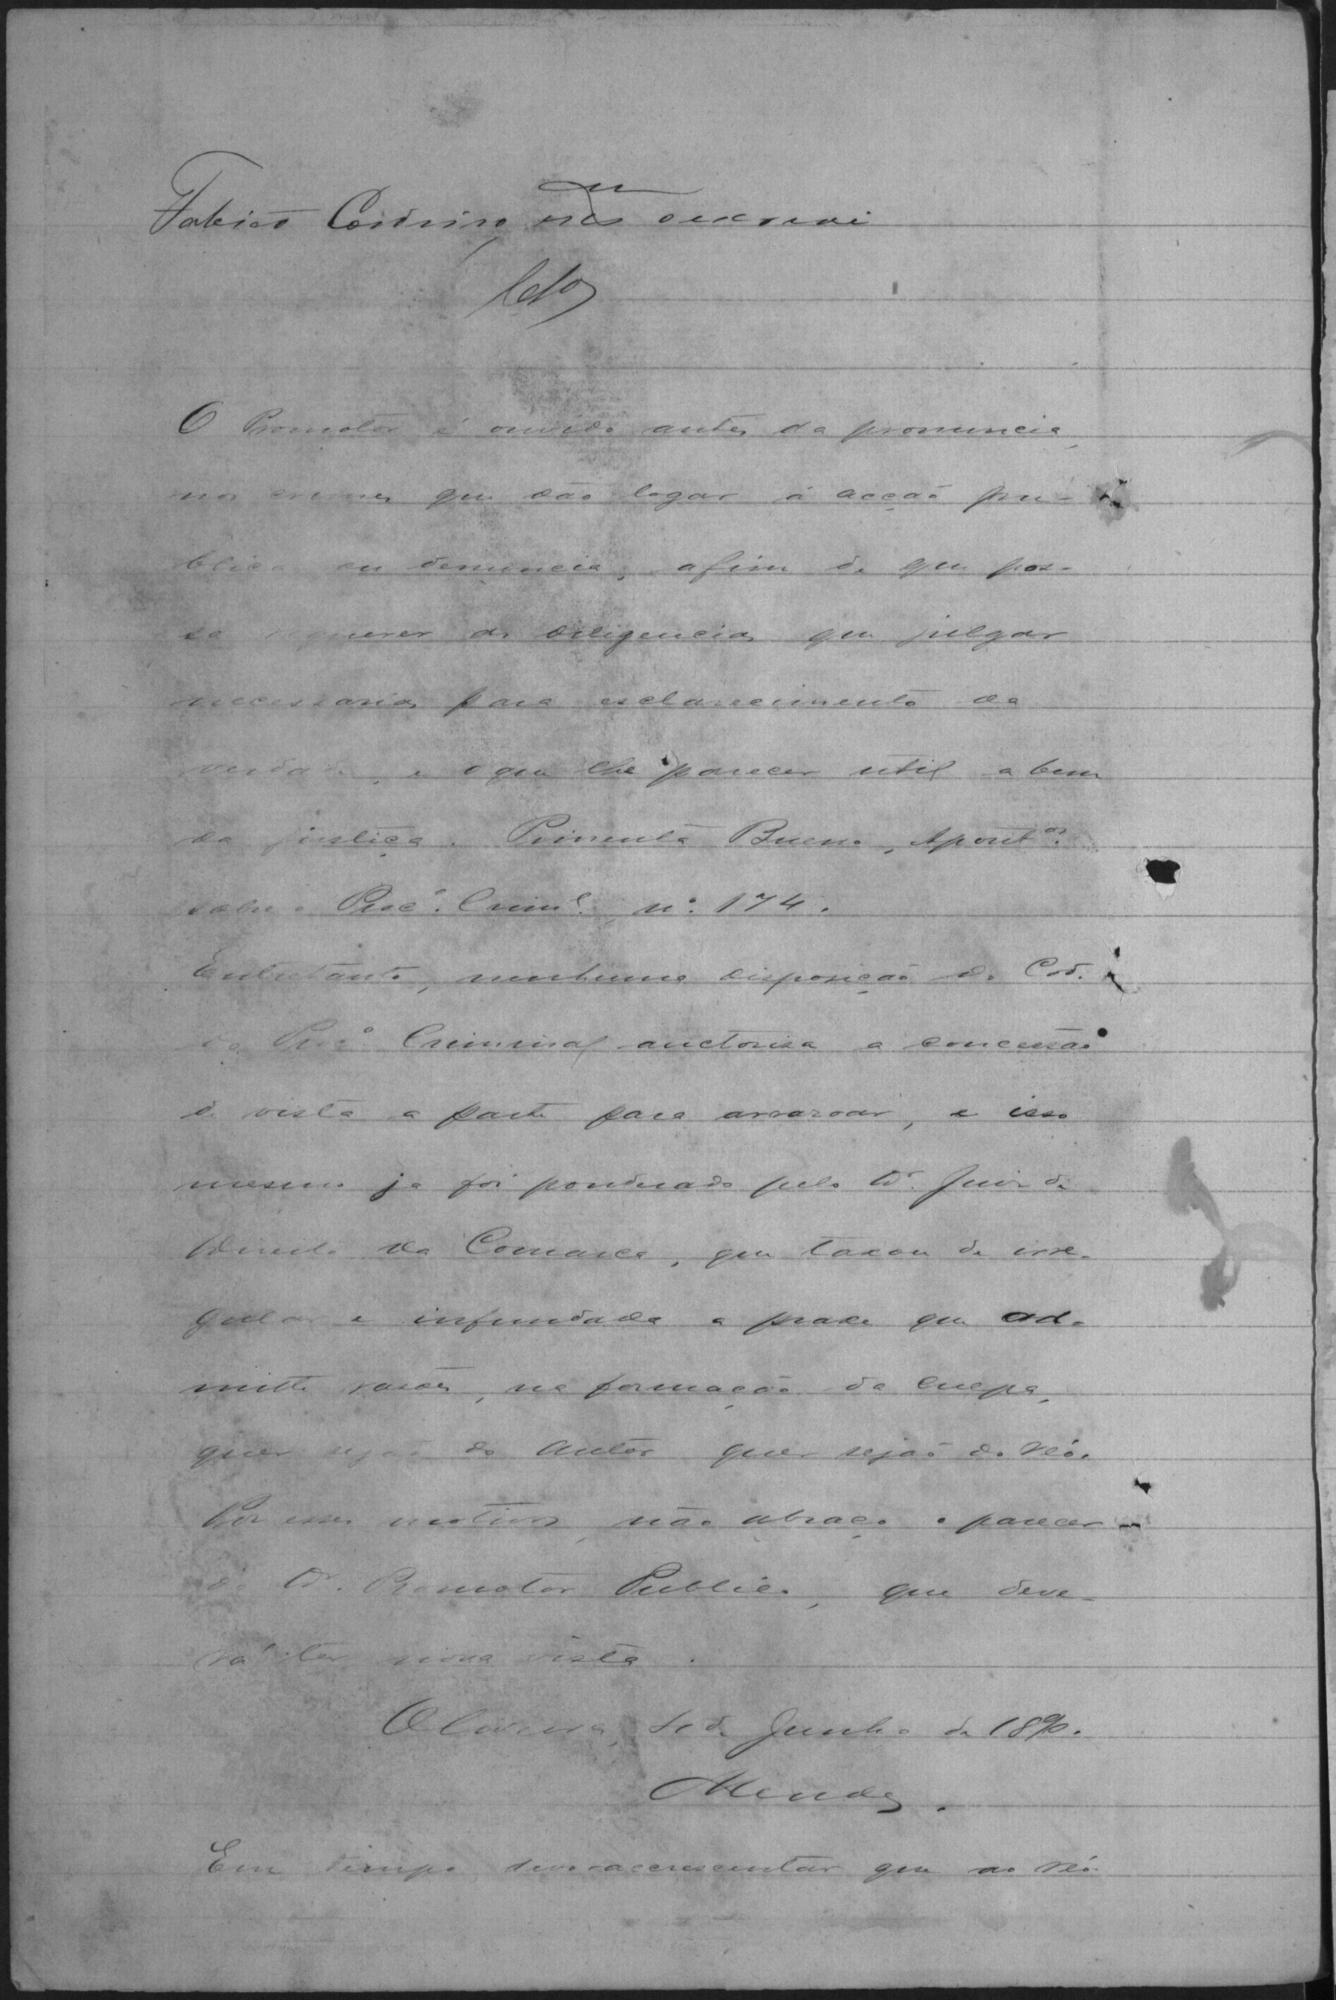 O Promotor é ouvido antes da pronuncia,
nos crimes que dão logar á acção pu-
blica ou denuncia, afim de que pos-
sa requerer as diligencias que julgar
necessarias para esclarecimento da
verdade, e o que lhe parecer util a bem
da justiça. Pimenta Bueno, Apont.os
sobre o Proc.o Crim.l n.o 174.
Entretanto, nenhuma disposição do Cod.
do Proc.o Criminal auctorisa a concessão
de vista a parte para arrazoar, e isso
mesmo ja foi ponderado pelo Dr. Juiz de
Direito da Comarca, que taxou de irre-
gular e infundada a praxe que ad-
mitte rasões, na formação da culpa,
quer sejão do Autor quer sejão do Réo.
Por esses motivos, não abraço o parecer
do Dr. Promotor Publico, que deve-
rá ter nova vista.
Oliveira, de Junho de 1890.
Mendes.
Em tempo devo accrescentar que ao Réo